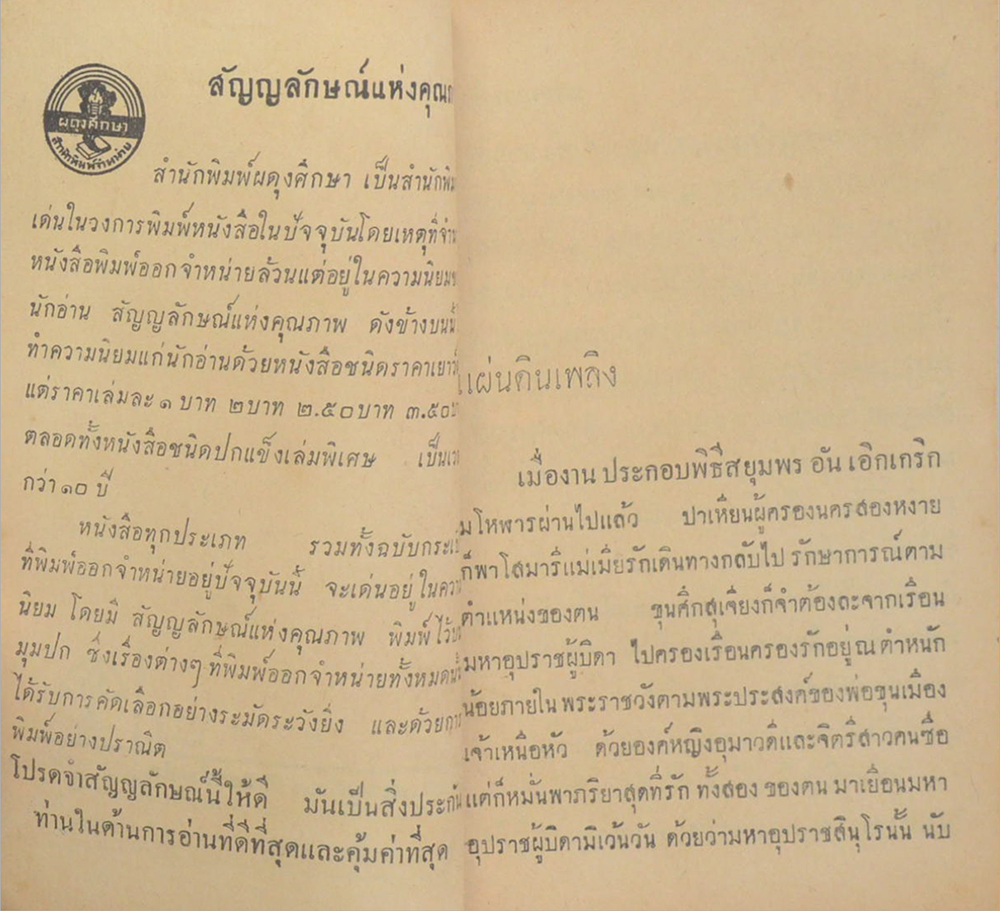 สัญญลักษณ์แห่งคุณ
ผดุงศึกษา
สำนักพิมพ์จำหน่าย
สำนักพิมพ์ผดุงศึกษา เป็นสำนักพิม
เด่นในวงการพิมพ์หนังสือในปัจจุบันโดยเหตุที่จำ
หนังสือพิมพ์ออกจำหน่ายล้วนแต่อยู่ในความนิยม
นักอ่าน สัญญลักษณ์แห่งคุณภาพ ดังข้างบนนี้
ทำความนิยมแก่นักอ่านด้วยหนังสือชนิดราคาเยาว์
แต่ราคาเล่มละ ๑ บาท ๒บาท ๒.๕๐บาท ๓.๕๐บ
ตลอดทั้งหนังสือชนิดปกแข็งเล่มพิเศษ เป็นเว
กว่า ๑๐ ปี
หนังสือทุกประเภท รวมทั้งฉบับกระเ
ที่พิมพ์ออกจำหน่ายอยู่ปัจจุบันนี้ จะเด่นอยู่ในคว
นิยม โดยมี สัญญลักษณ์แห่งคุณภาพ พิมพ์ไว้
มุมปก ซึ่งเรื่องต่างๆ ที่พิมพ์ออกจำหน่ายทั้งหมด
ได้รับการคัดเลือกอย่างระมัดระวังยิ่ง และด้วยกา
พิมพ์อย่างปราณิต
โปรดจำสัญญลักษณ์นี้ให้ดี มันเป็นสิ่งประกัน
ท่านในด้านการอ่านที่ดีที่สุดและคุ้มค่าที่สุด
แผ่นดินเพลิง
เมื่องาน ประกอบพิธีสยุมพร อัน เอิกเกริก
มโหฬารผ่านไปแล้ว ปาเหียนผู้ครองนครสองหงาย
ก็พาโสมารีแม่เมียรักเดินทางกลับไป รักษาการณ์ตาม
ตำแหน่งของตน ขุนศึกสุเจียงก็จำต้องละจากเรือน
มหาอุปราชผู้บิดา ไปครองเรือนครองรักอยู่ณ ตำหนัก
น้อยภายใน พระราชวังตามพระประสงค์ของพ่อขุนเมือง
เจ้าเหนือหัว ด้วยองค์หญิงอุมาวดีและจิตรีสาวคนซื่อ
แต่ก็หมั่นพาภริยาสุดที่รัก ทั้งสอง ของตน มาเยือนมหา
อุปราชผู้บิดามิเว้นวัน ด้วยว่ามหาอุปราชสินุโรนั้น นับ